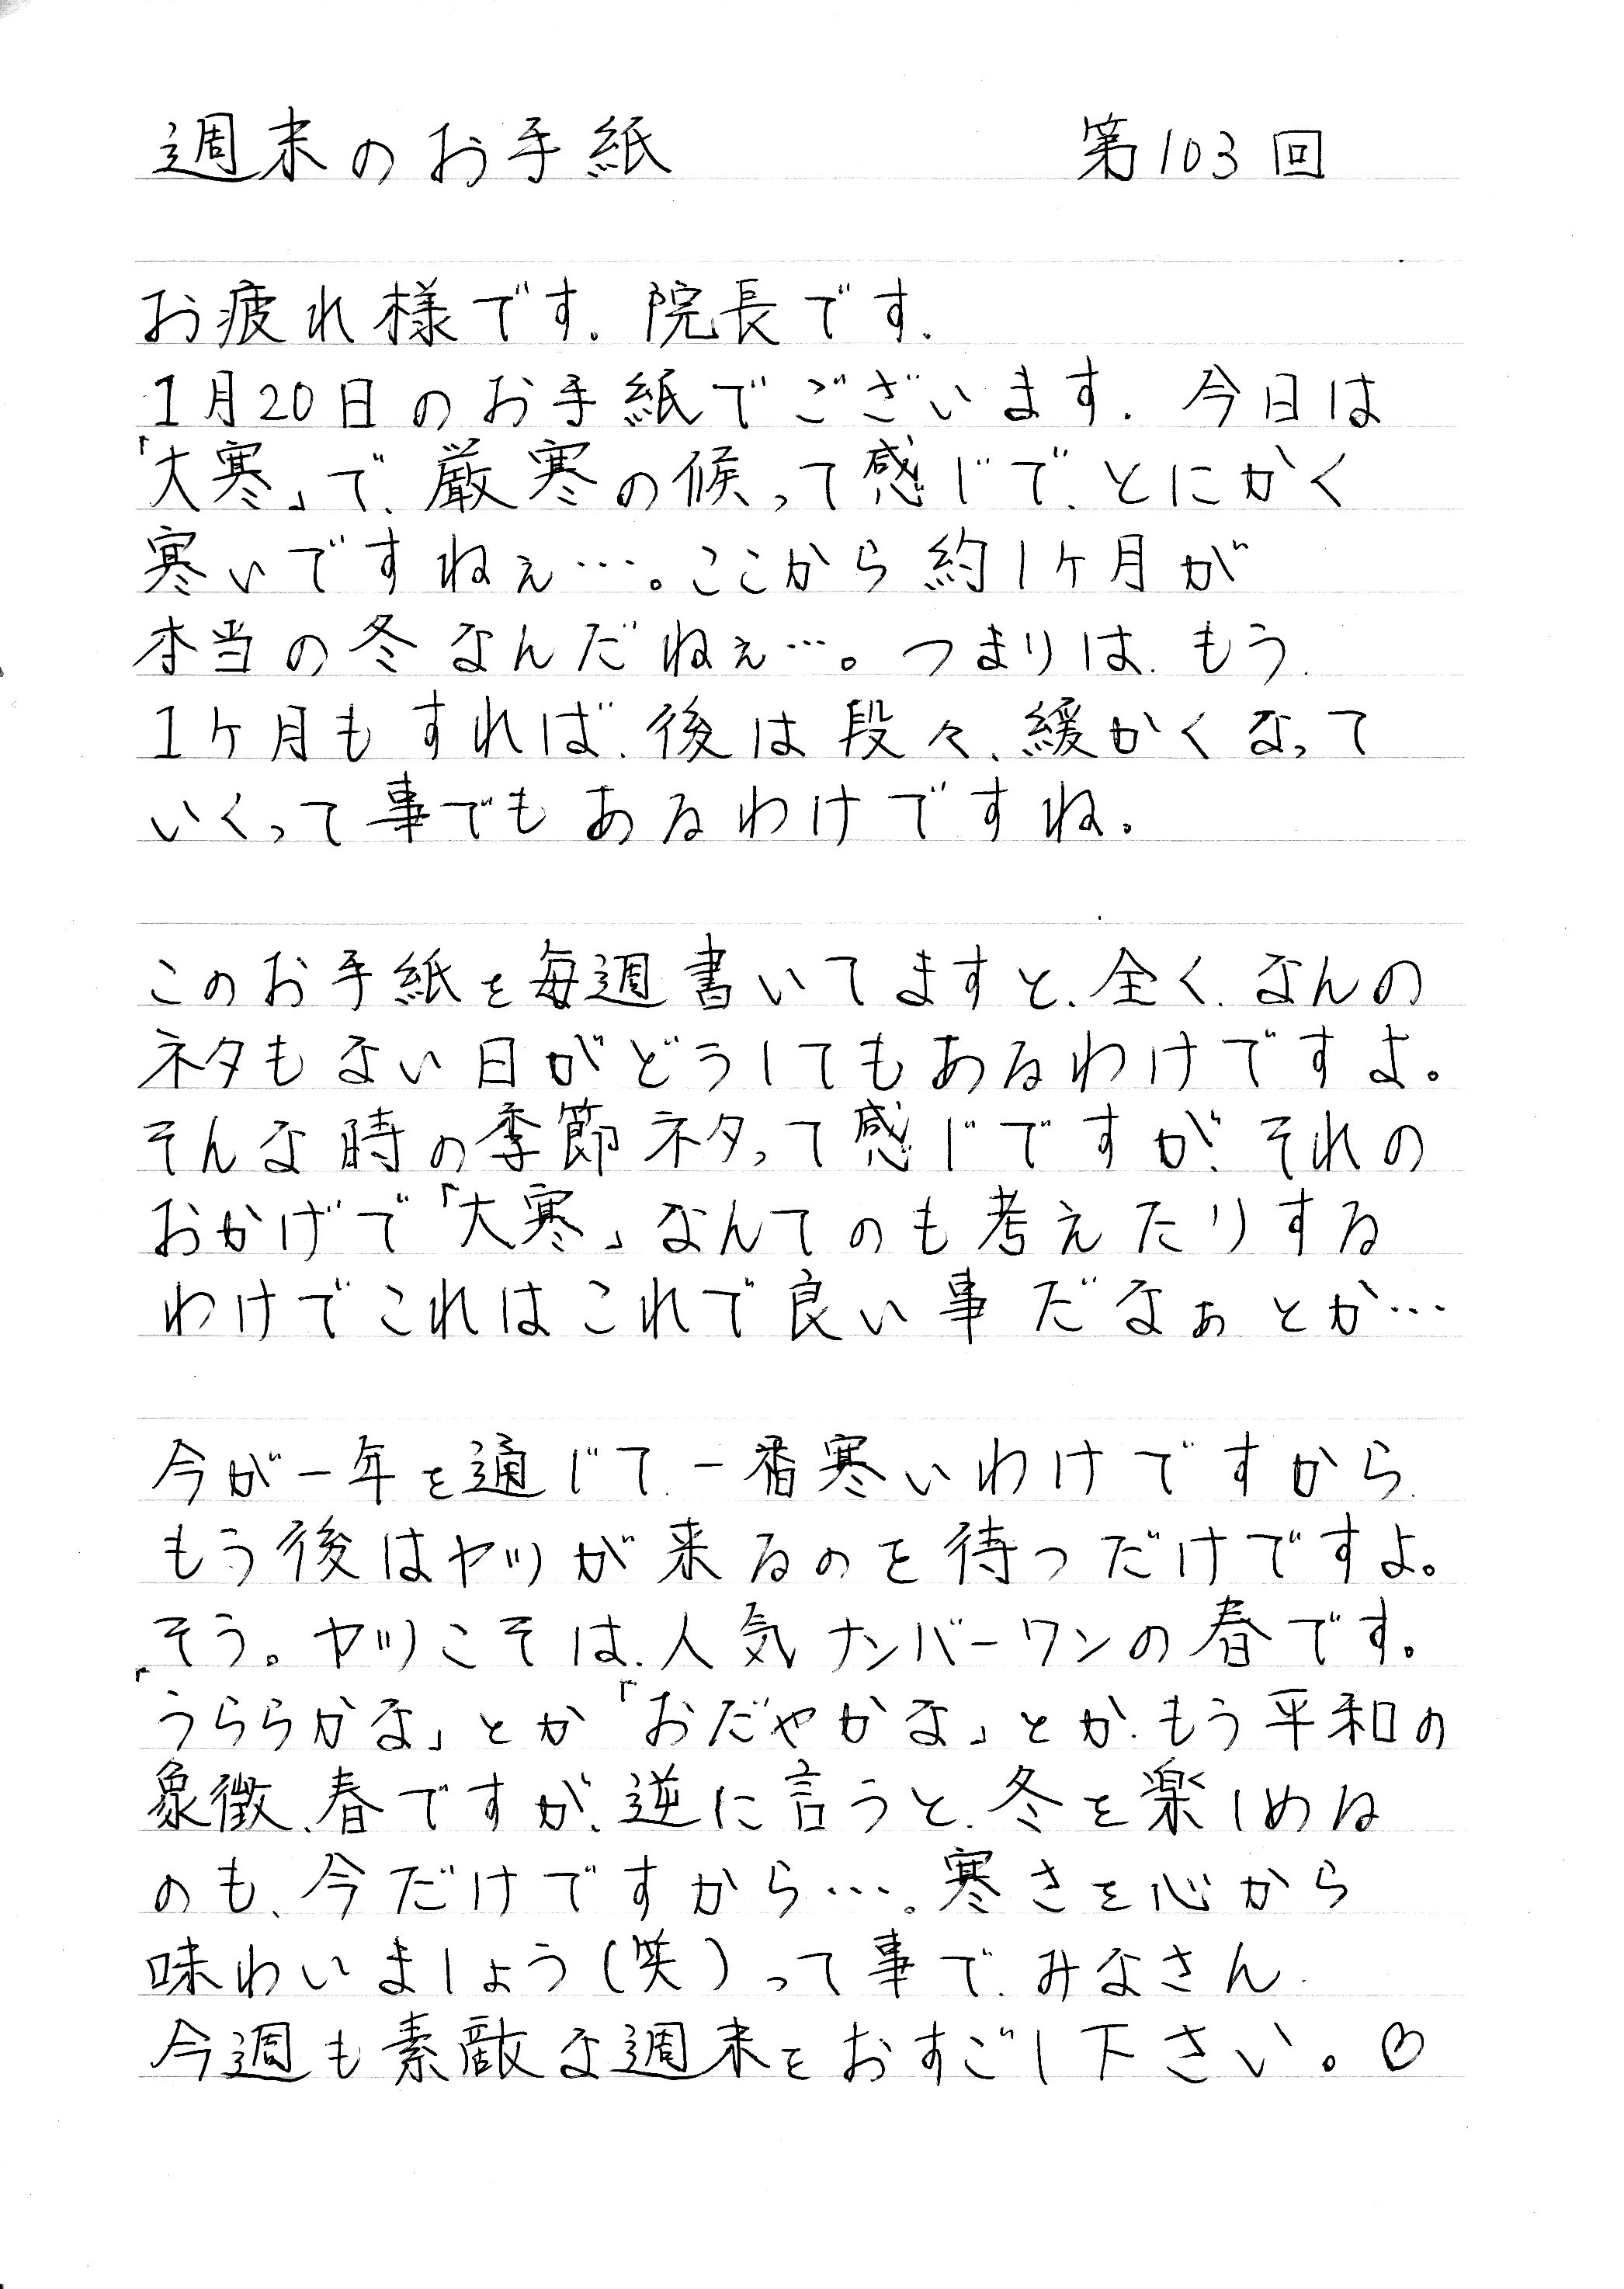 週末のお手紙 第103回
お疲れ様です。院長です。
1月20日のお手紙でございます。今日は
「大寒」で、厳寒の候って感じで、とにかく
寒いですねぇ…。ここから約1ケ月が
本当の冬なんだねぇ…。つまりは、もう、
1ケ月もすれば、後は段々、緩かくなって
いくって事でもあるわけですね。
このお手紙を毎週書いてますと、全く、なんの
ネタもない日がどうしてもあるわけですよ。
そんな時の季節ネタって感じですが、それの
おかげで「大寒」なんてのも考えたりする
わけでこれはこれで良い事だなぁとか…
今が一年を通じて、一番寒いわけですから、
もう後はヤツが来るのを待つだけですよ。
そう。ヤツこそは、人気ナンバーワンの春です。
「うららかな」とか「おだやかな」とか、もう平和の
象徴、春ですが、逆に言うと、冬を楽しめる
のも、今だけですから…。寒さを心から
味わいましょう(笑)って事で、みなさん、
今週も素敵な週末をおすごし下さい。♡